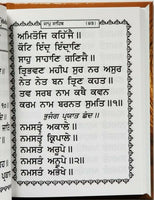 ਜਾਪੁ ਸਾਹਿਬ
ਅਮਿਤੋਜ ਕਹਿੱਜੈ ॥
ਕੋਟਿ ਇੰਦ੍ਰ ਇੰਦ੍ਰਾਣਿ
ਸਾਹੁ ਸਾਹਾਣਿ ਗਣਿਜੈ ॥
ਤ੍ਰਿਭਵਣ ਮਹੀਪ ਸੁਰ ਨਰ ਅਸੁਰ
ਨੇਤ ਨੇਤ ਬਨ ਤ੍ਰਿਣ ਕਹਤ ॥
ਤਵ ਸਰਬ ਨਾਮ ਕਥੈ ਕਵਨ
ਕਰਮ ਨਾਮ ਬਰਨਤ ਸੁਮਤਿ ॥੧॥
ਭੁਜੰਗ ਪ੍ਰਯਾਤ ਛੰਦ ॥
ਨਮਸਤੰ ਅਕਾਲੇ ॥
ਨਮਸਤੰ ਕ੍ਰਿਪਾਲੇ ॥
ਨਮਸਤੰ ਅਰੂਪੇ ॥
ਨਮਸਤੰ ਅਨੂਪੇ ॥੨॥
ਨਮਸਤੰ ਅਭੇਖੇ ॥